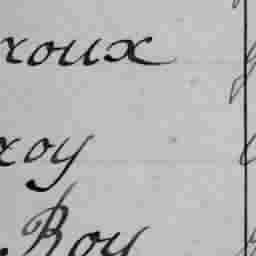 roux
roy
Roy